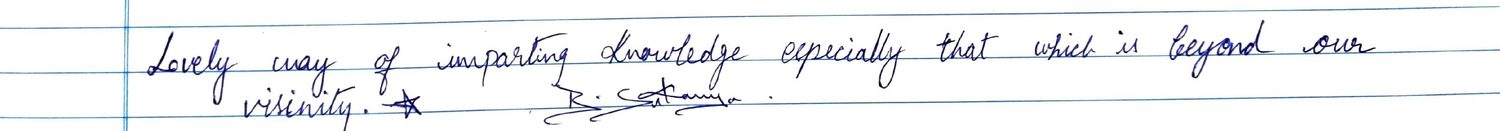 Lovely way of imparting knowledge especially that which is beyond our
visinity. ☆ R.